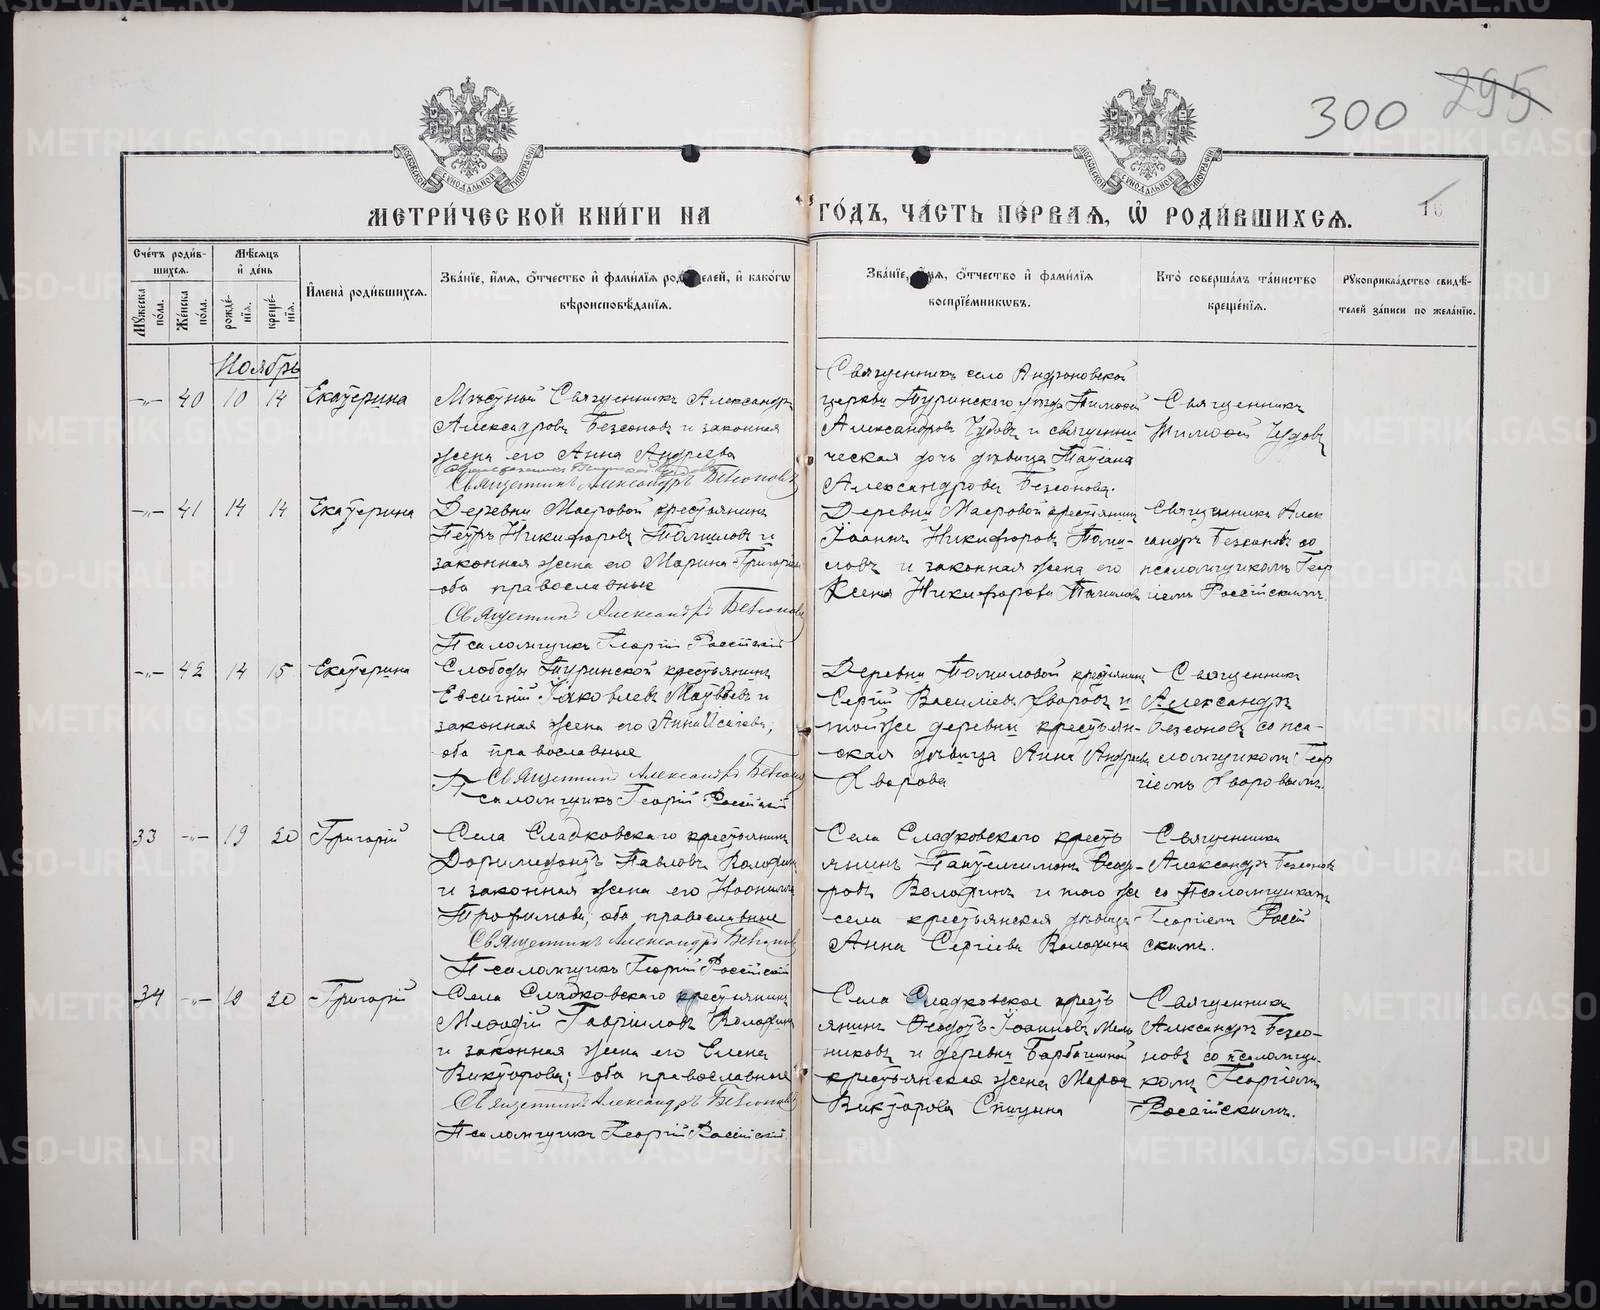 300 295
МОСКОВСКОЙ СѴНОДАЛЬНОЙ ТИПОГРАФІИ
МОСКОВСКОЙ СѴНОДАЛЬНОЙ ТИПОГРАФІИ
МЕТРИ́ЧЕСКОЙ КНИ́ГИ НА ГО́ДЪ, ЧА́СТЬ ПЕ́РВАЯ, Ѡ РОДИ́ВШИХСЯ.
Сче́тъ роди́в-
шихся.
Мꙋ́жеска по́ла.
Же́нска по́ла.
Мѣ́сяцъ
и҆ де́нь
рожде́-
нїя.
креще́-
нїя.
И҆мена̀ роди́вшихся.
Зва́нїе, и҆́мя, ѻ҆́тчество и҆ фами́лїя роди́телей, и҆ како́гѡ
вѣроисповѣ́данїя.
Зва́нїе, и҆́мя, ѻ҆́тчество и҆ фами́лїя
воспрїе́мникѡвъ.
Кто̀ соверша́лъ та́инство
креще́нїя.
Рꙋкоприкла́дство свидѣ́-
телей за́писи по жела́нїю.
Ноябрь
-„- 40 10 14 Екатерина
Мѣстной Священникъ Александръ
Александровъ Безсоновъ и законная
жена его Анна Андреева
Священникъ Александръ Безсоновъ
Священникъ село Андроновской
церкви Туринского уезда Тимофей
Александровъ Чудовъ и священни
ческая дочь дѣвица Татіана
Александрова Безсонова.
Священникъ
Тимофей Чудовъ
-„- 41 14 14 Екатерина
Деревни Маеровой крестьянинъ
Петръ Никифоровъ Томиловъ и
законная жена его Марина Григорьева
оба православные
Священникъ Александръ Безсоновъ
Псаломщикъ Георгій Россійскій
Деревни Маеровой крестьянинъ
Іоаннъ Никифоровъ Томи-
ловъ и законная жена его
Ксенія Никифорова Томилова
Священникъ Алек
сандръ Безсоновъ со
псаломщикомъ Геор
гіемъ Россійскимъ.
-„- 42 14 15 Екатерина
Слободы Туринской крестьянинъ
Евсигній Іаковлевъ Матвѣевъ и
законная жена его Анна Исаіева;
оба православные
Священникъ Александръ Безсоновъ
Псаломщикъ Георгій Россійскій
Деревни Томиловой крестьянинъ
Сергій Василіевъ Хворовъ и
той же деревни крестьян-
ская дѣвица Анна Андреева
Хворова
Священникъ
Александръ
Безсоновъ со пса-
ломщикомъ Геор
гіемъ Хворовымъ.
33 -„- 19 20 Григорій
Села Сладковскаго крестьянинъ
Доримедонтъ Павловъ Волохинъ
и законная жена его Неонилла
Трофимова, оба православные
Священникъ Александръ Безсоновъ
Псаломщикъ Георгій Россійскій
Села Сладковскаго кресть
янинъ Пантелиимонъ Ѳеодо-
ровъ Волохинъ и того же
села крестьянская дѣвица
Анна Сергіева Волохина
Священникъ
Александръ Безсоновъ
со Псаломщикомъ
Георгіемъ Россій
скимъ.
34 -„- 19 20 Григорій
Села Сладковскаго крестьянинъ
Меѳодій Гавріиловъ Волохинъ
и законная жена его Елена
Викторова; оба православные
Священникъ Александръ Безсоновъ
Псаломщикъ Георгій Россійскій
Села Сладковское кресть
янинъ Ѳеодотъ Іоанновъ Мель
никовъ и деревни Барбашиной
крестьянская жена Марѳа
Викторова Спицына
Священникъ
Александръ Безсо-
новъ со псаломщи-
комъ Георгіемъ
Россійскимъ.
METRIKI.GASO-URAL.RU